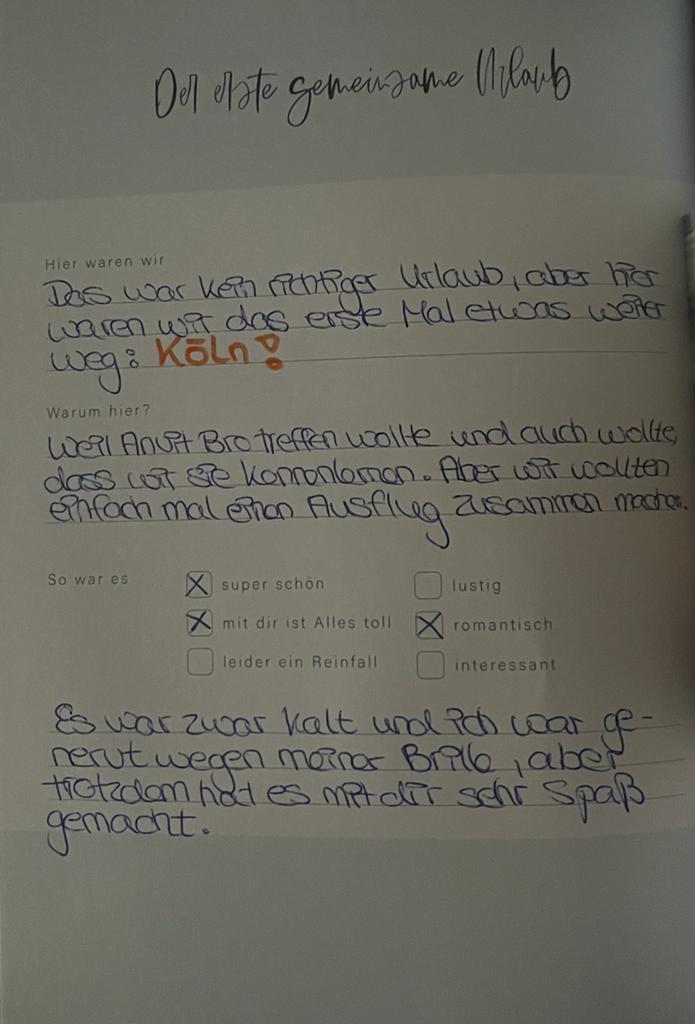 Der erste gemeinsame Urlaub
Hier waren wir
Das war kein richtiger Urlaub, aber hier
waren wir das erste Mal etwas weiter
weg: Köln!
Warum hier?
Weil Bro treffen wollte und auch wollte,
dass wir sie kennenlernen. Aber wir wollten
einfach mal einen Ausflug zusammen machen.
So war es
super schön
lustig
mit dir ist Alles toll
romantisch
leider ein Reinfall
interessant
Es war zwar kalt und ich war ge-
nervt wegen meiner Brille, aber
trotzdem hat es mit dir sehr Spaß
gemacht.